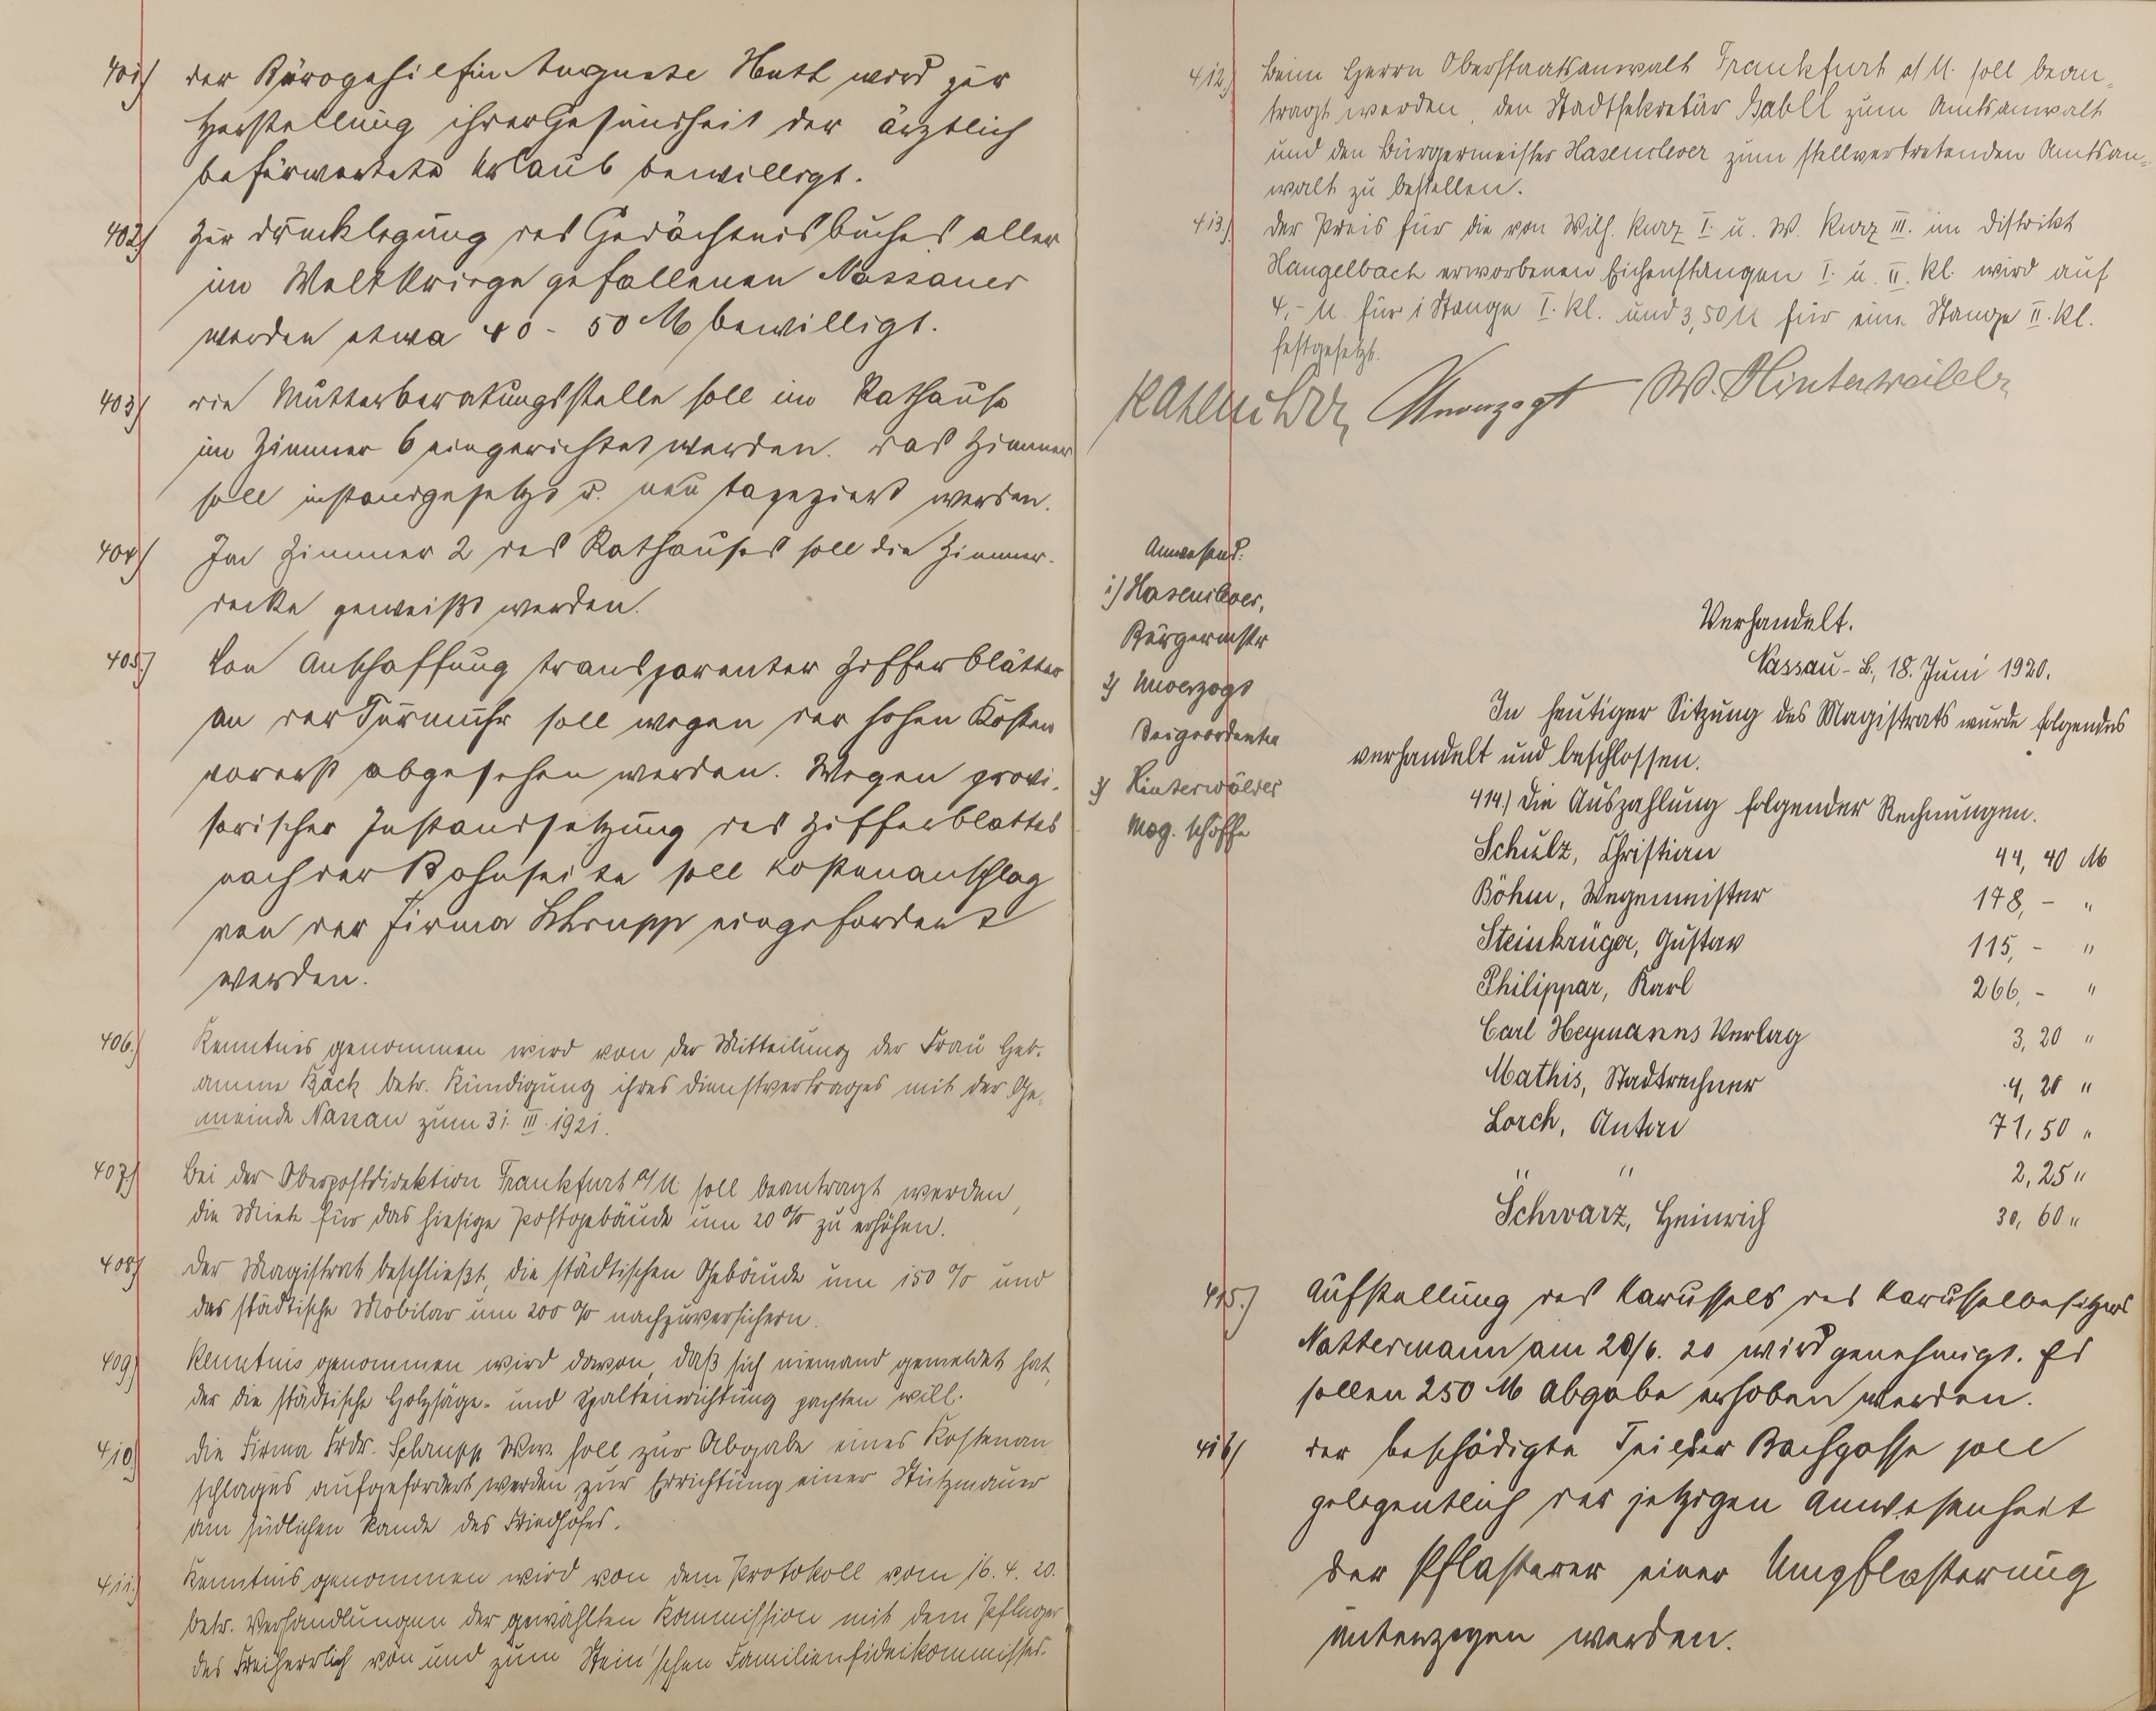 401) der Bürogehilfin Auguste Huth wird zur
Herstellung ihrer Gesundheit der ärztlich
befürwortete Urlaub bewilligt.
402) Zur Drucklegung des Gedächtnisbuches aller
im Weltkriege gefallenen Nassauer
werden etwa 40 - 50 M bewilligt.
403) die Mütterberatungsstelle soll im Rathause
im Zimmer 6 eingerichtet werden. Das Zimmer
soll instandgesetzt u. neu tapeziert werden.
404) Im Zimmer 2 des Rathauses soll die Zimmer-
decke geweißt werden.
405.) Von Anschaffung transparenter Zifferblätter
an der Turmuhr soll wegen der hohen Kosten
vorerst abgesehen werden. Wegen provi-
sorischer Instandsetzung des Zifferblattes
nach der Bahnseite soll Kostenanschlag
von der Firma Schrupp eingefordert
werden.
406.) Kenntnis genommen wird von der Mitteilung der Frau Heb-
amme Bäck betr. Kündigung ihres Dienstvertrages mit der Ge-
meinde Nassau zum 31. III. 1921.
407.) Bei der Oberpostdirektion Frankfurt a/M. soll beantragt werden,
die Miete für das hiesige Postgebäude um 20 % zu erhöhen.
408.) Der Magistrat beschließt, die städtischen Gebäude um 150 % und
das städtische Mobilar um 200 % nachzuversichern.
409.) Kenntnis genommen wird davon, daß sich niemand gemeldet hat,
der die städtische Holzsäge- und Spalteinrichtung pachten will.
410.) Die Firma Frdr. Schrupp Ww. soll zur Abgabe eines Kostenan
schlages aufgefordert werden zur Errichtung einer Stützmauer
am südlichen Rande des Friedhofes.
411.) Kenntnis genommen wird von dem Protokoll vom 16. 4. 20.
betr. Verhandlungen der gewählten Kommission mit dem Pfleger
des Freiherrlich von und zum Stein'schen Familienfideikommisses.
412.) Beim Herrn Oberstaatsanwalt Frankfurt a/M. soll bean-
tragt werden, den Stadtsekretär Babll zum Amtsanwalt
und den Bürgermeister Hasenclever zum stellvertretenden Amtsan-
walt zu bestellen.
413.) Der Preis für die von Wilh. Kurz I. u. W. Kurz III. im Distrikt
Hangelbach erworbenen Eichenstangen I. u. II. Kl. wird auf
4,- M. für 1 Stange I. Kl. und 3,50 M für eine Stange II. Kl.
festgesetzt.
Hasenclever Unverzagt W. Hinterwäller
Anwesend:
1) Hasenclever,
Bürgermstr
2) Unverzagt
Beigeordneter
3) Hinterwäller
Mag. Schöffe
Verhandelt.
Nassau-L., 18. Juni 1920.
In heutiger Sitzung des Magistrats wurde folgendes
verhandelt und beschlossen.
414.) Die Auszahlung folgender Rechnungen.
Schulz, Christian 44, 40 M
Böhm, Wegemeister 178, - "
Steinkrüger, Gustav 115, - "
Philippar, Karl 266, - "
Carl Heymanns Verlag 3, 20 "
Mathis, Stadtrechner 4, 20 "
Lorch, Anton 71, 50 "
" " 2, 25 "
Schwarz, Heinrich 30, 60 "
415.) Aufstellung des Karussels des Karusselbesitzers
Nattermann am 20/6. 20 wird genehmigt. Es
sollen 250 M Abgabe erhoben werden.
416) der beschädigte Teil der Bachgasse soll
gelegentlich der jetzigen Anwesenheit
der Pflasterer einer Umpflasterung
unterzogen werden.